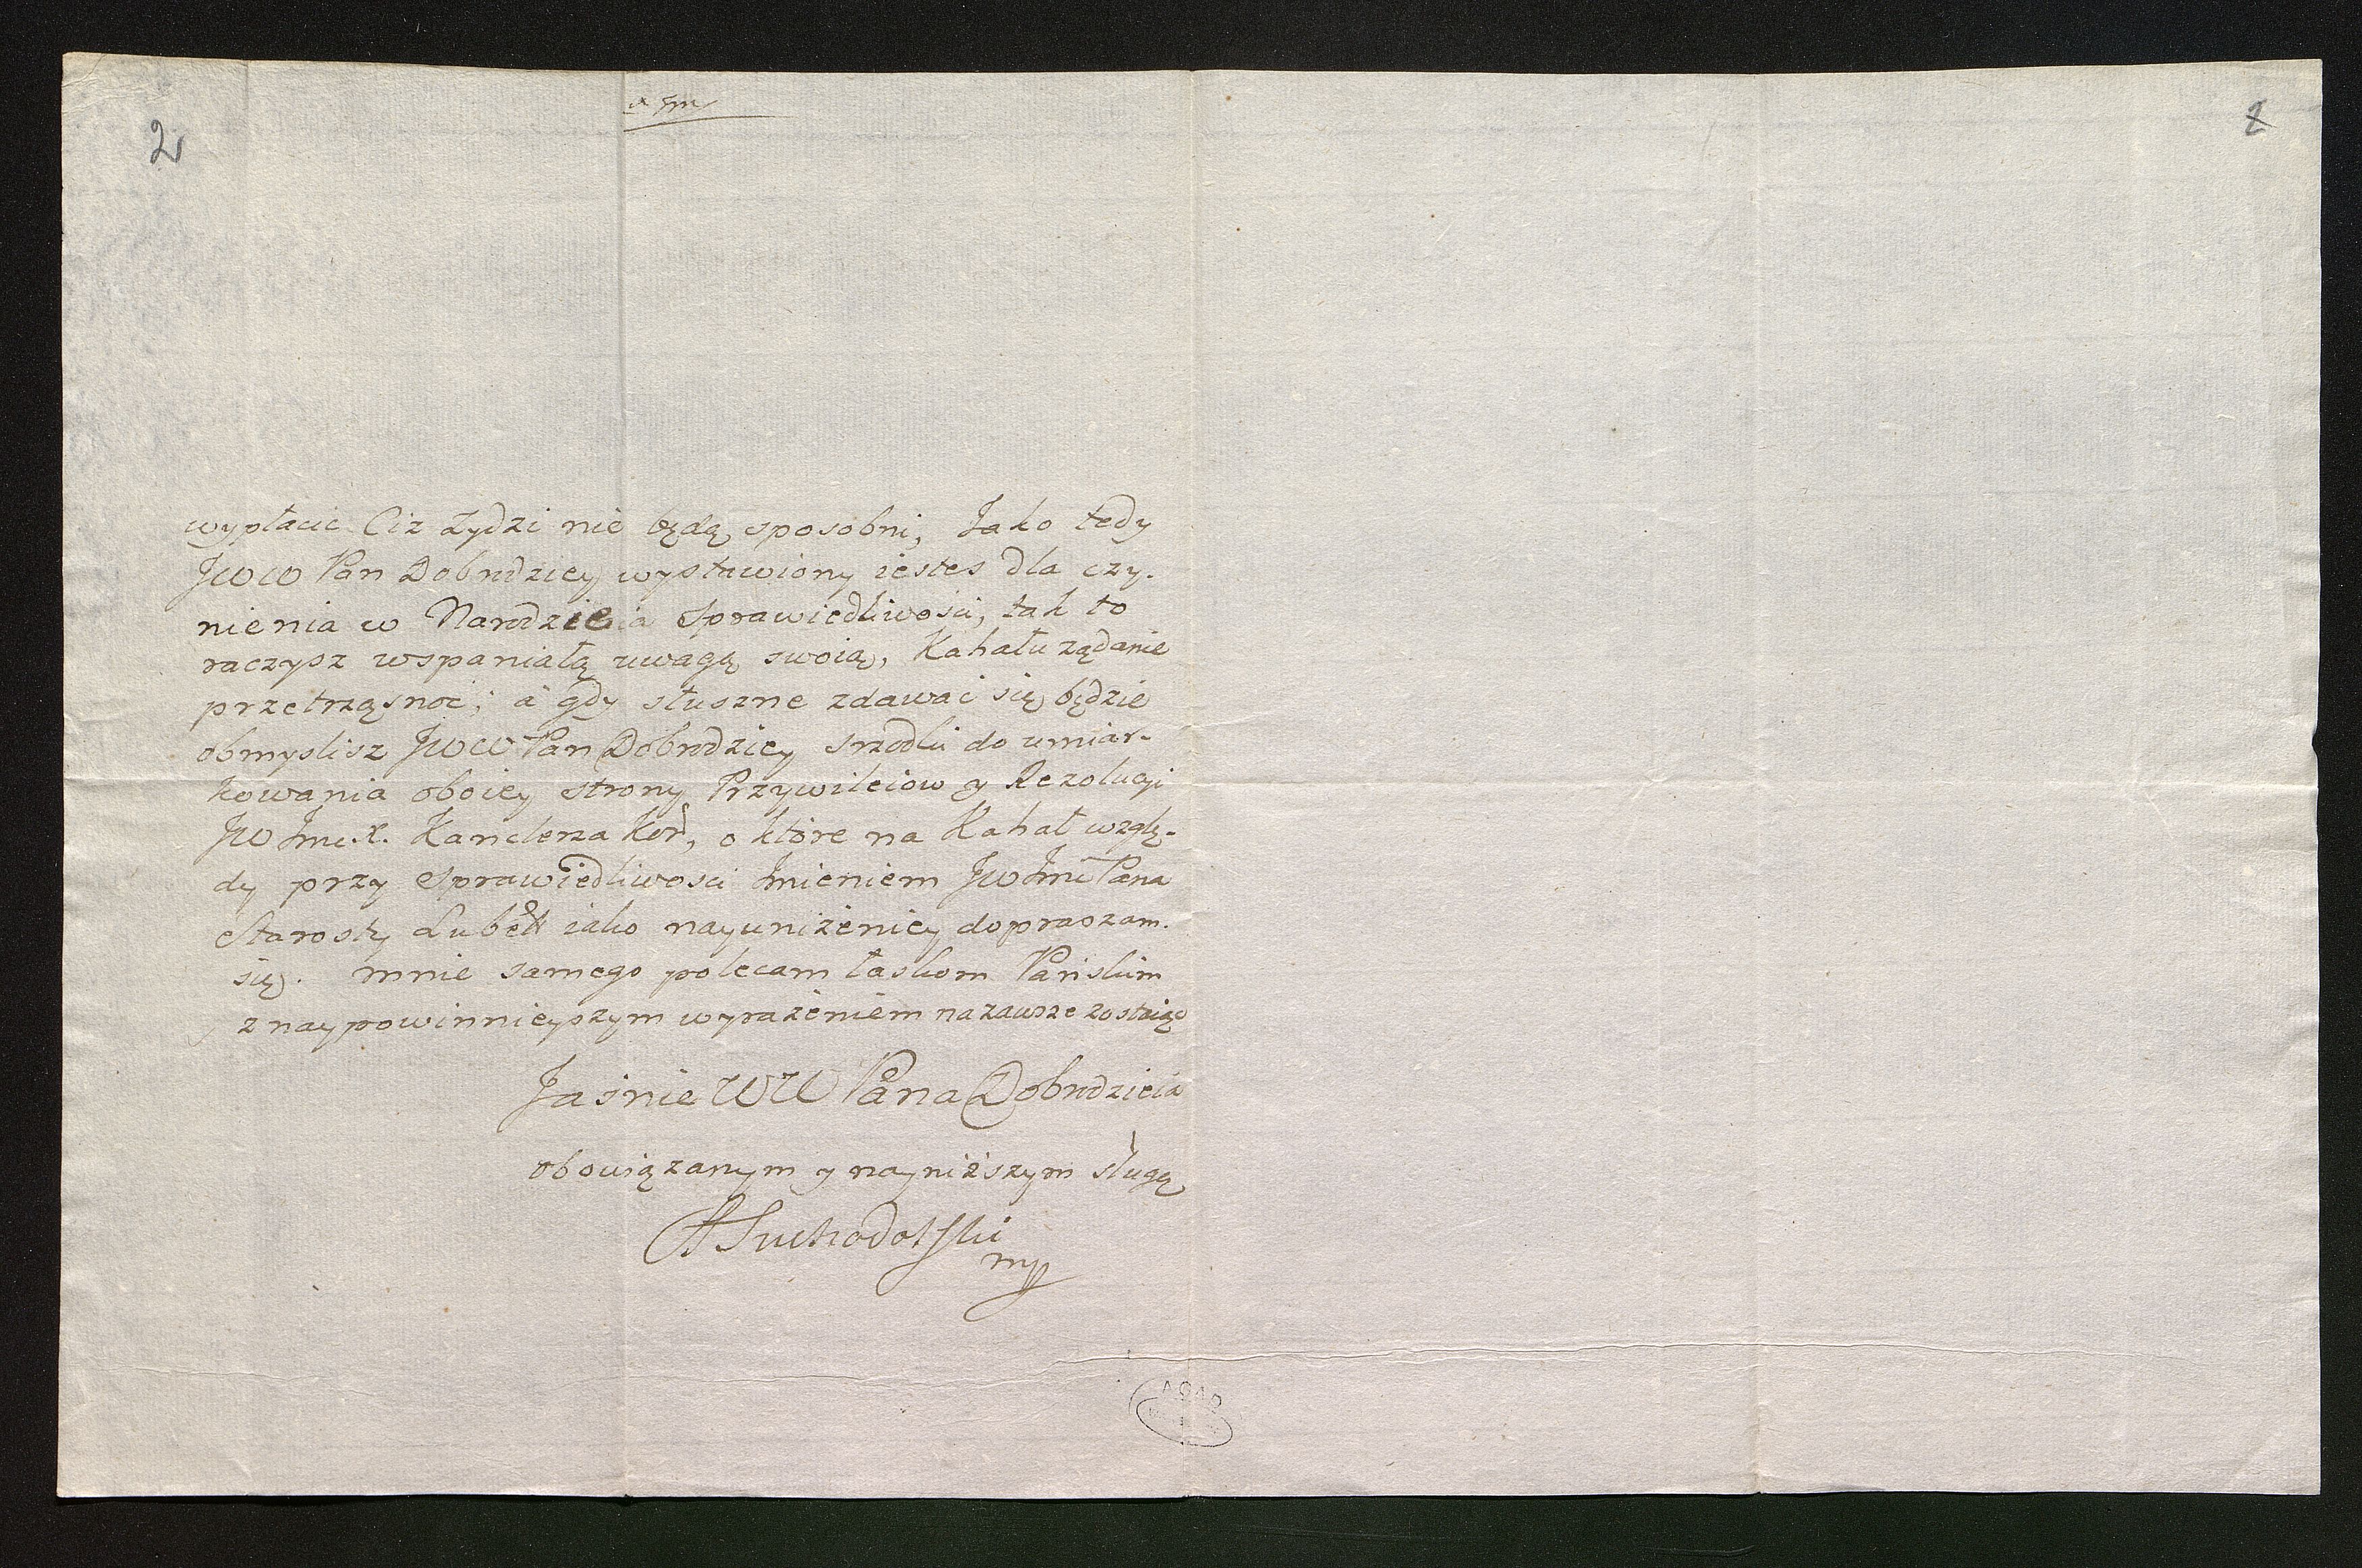 2
wypłacic Ciz Zydzi nie będą sposobni, Jako tedy
JWW Pan Dobrodziey wystawiony iestes dla czy-
nienia w Narodzie Sprawiedliwości, tak to
raczysz wspaniałą uwagą swoią, Kahału ządanie
przetrząsnoć; a gdy słuszne zdawać się będzie
obmyslisz JWW Pan Dobrodziey srzodki do umiar-
kowania oboiey strony Przywileiow y Rezolucyi
JW Jmc. X. Kanclerza Kor, o które na Kahał wzglę-
dy przy Sprawiedliwosci Imieniem JW Jmć Pana
Starosty Lubell iako nayuniżeniey dopraszam
się. mnie samego polecam łaskom Pańskim
z naypowinnieyszym wyrażeniem na zawsze zostaiąc
Jaśnie WW Pana Dobrodzieia
obowiązanym y nayniższym sługą
ASuchodolski
mp
AGAD